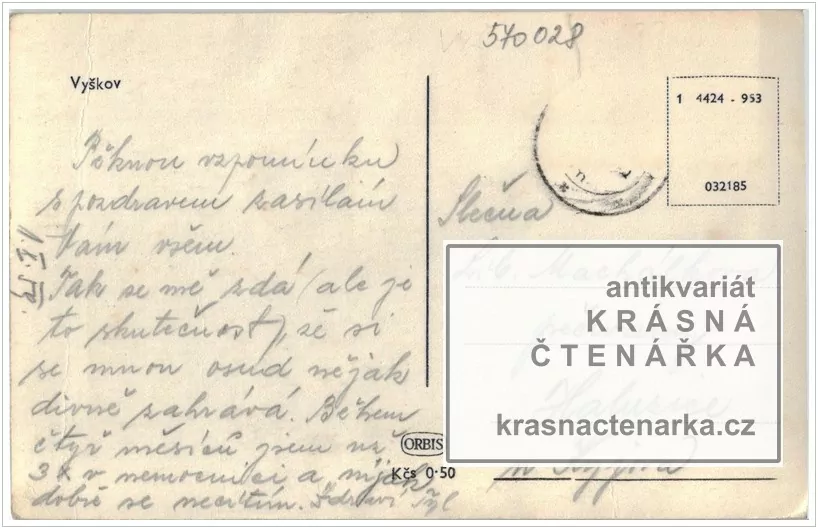 570028
Vyškov
1 4424 - 953
032185
Pěknou vzpomínku
s pozdravem zasílám
Vám všem.
Tak se mě zdá (ale je
to skutečnost), že si
se mnou osud nějak
divně zahrává. Během
čtyř měsíců jsem už
3x v nemocnici a nijak
dobře se necítím. Zdraví
Slečna
Lib.
antikvariát
KRÁSNÁ
ČTENÁŘKA
krasnactenarka.cz
ORBIS
Kčs 0·50